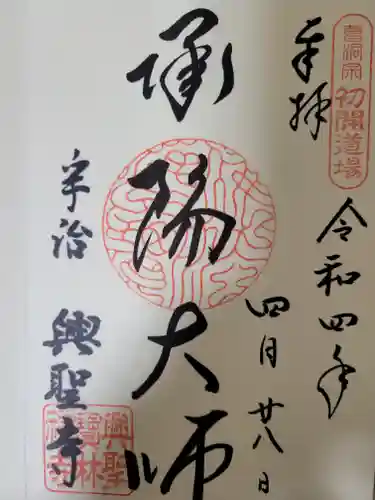 曹洞宗
初開道場
奉拝
令和四年
四月廿八日
承陽大師
宇治 興聖寺
興聖
寳林
禅寺